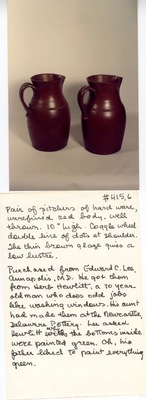 #415,6
Pair of pitchers of hard ware,
unrefined red body, well
thrown. 10" high. Coggle wheel
double line of dots at shoulder.
The thin brown glaze gives a
low lustre.
Purchased from Edward C. Lee,
Annapolis, M.D. He got them
from Herb Hewlitt, a 70 year
old man who does odd jobs
like washing windows. His aunt
had made them at the Newcastle,
Delaware Pottery. Lee asked
Hewlitt why the bottoms inside
were painted green. Oh, his
father liked to paint everything
green.